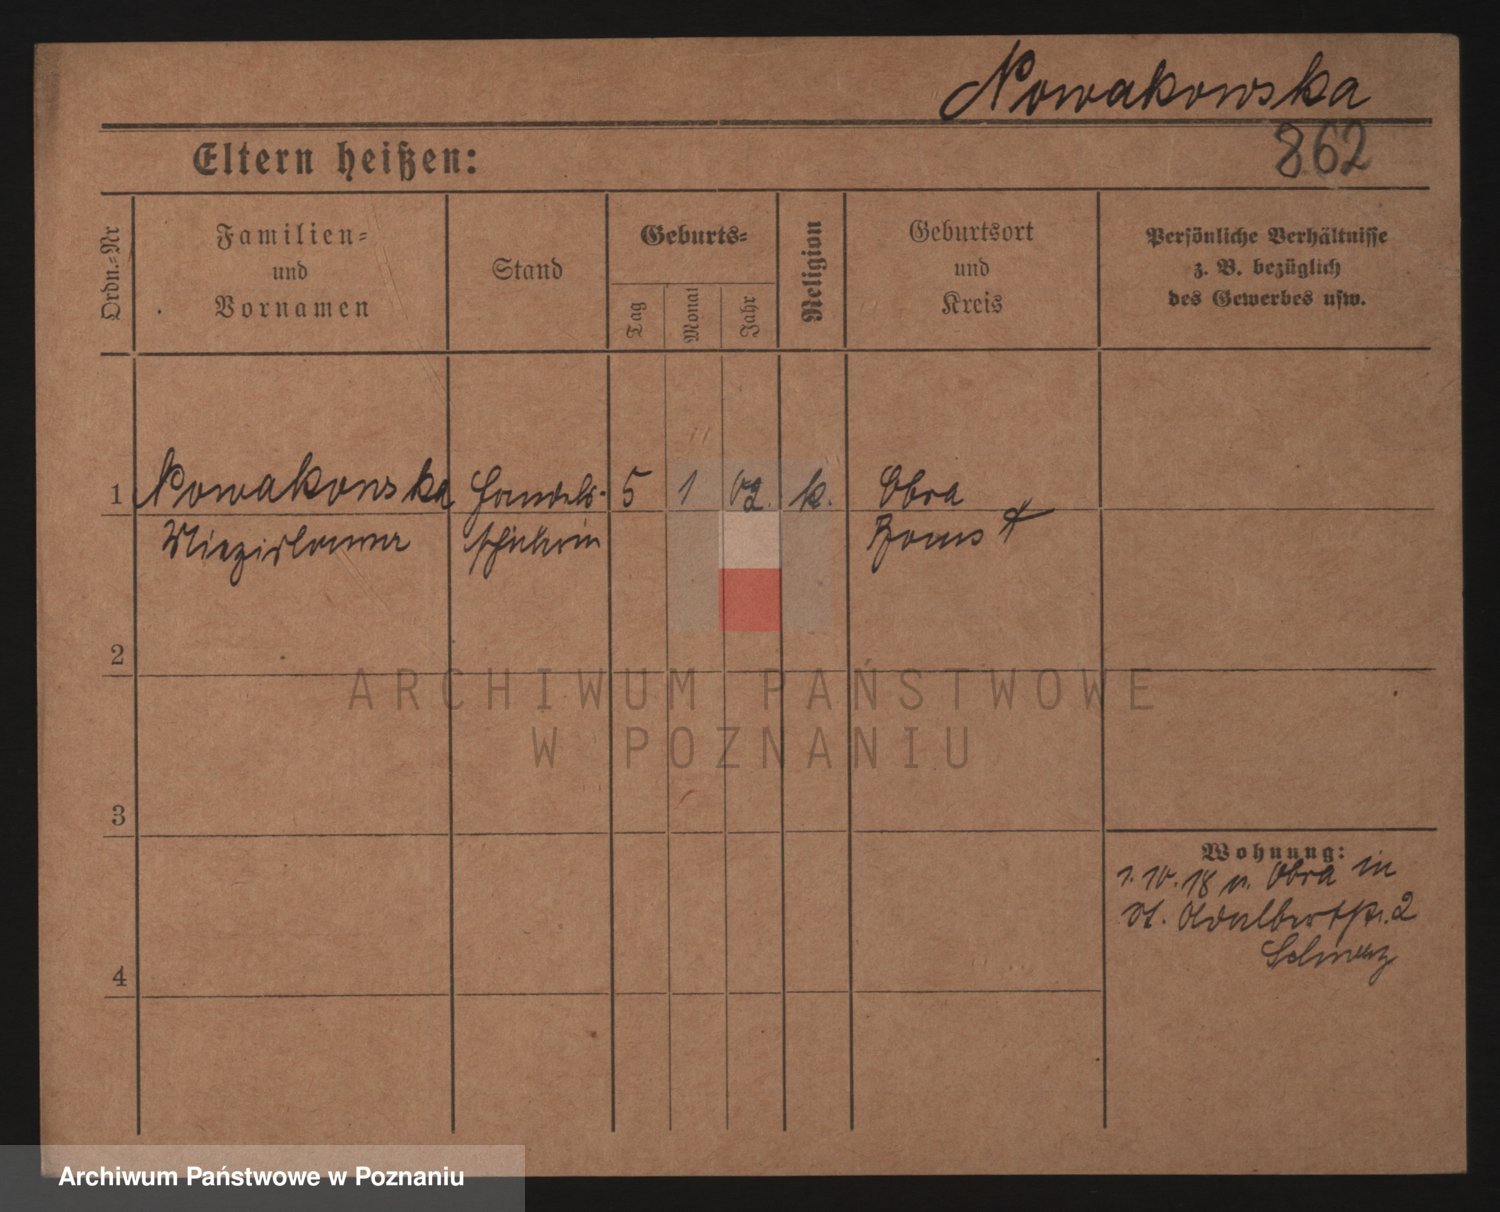 Nowakowska
862
Eltern heißen:
Ordn.=Nr
Familien=
und
Vornamen
Stand
Geburts=
Tag
Monat
Jahr
Religion
Geburtsort
und
Kreis
Persönliche Verhältnisse
z. B. bezüglich
des Gewerbes usw.
1 Nowakowska Handels- 5 1 02. k. Obra
schülerin Bomst
2
3
4
Wohnung:
1.10.18 v. Obra in
St. Adalbertstr. 2
ARCHIWUM PAŃSTWOWE
W POZNANIU
Archiwum Państwowe w Poznaniu